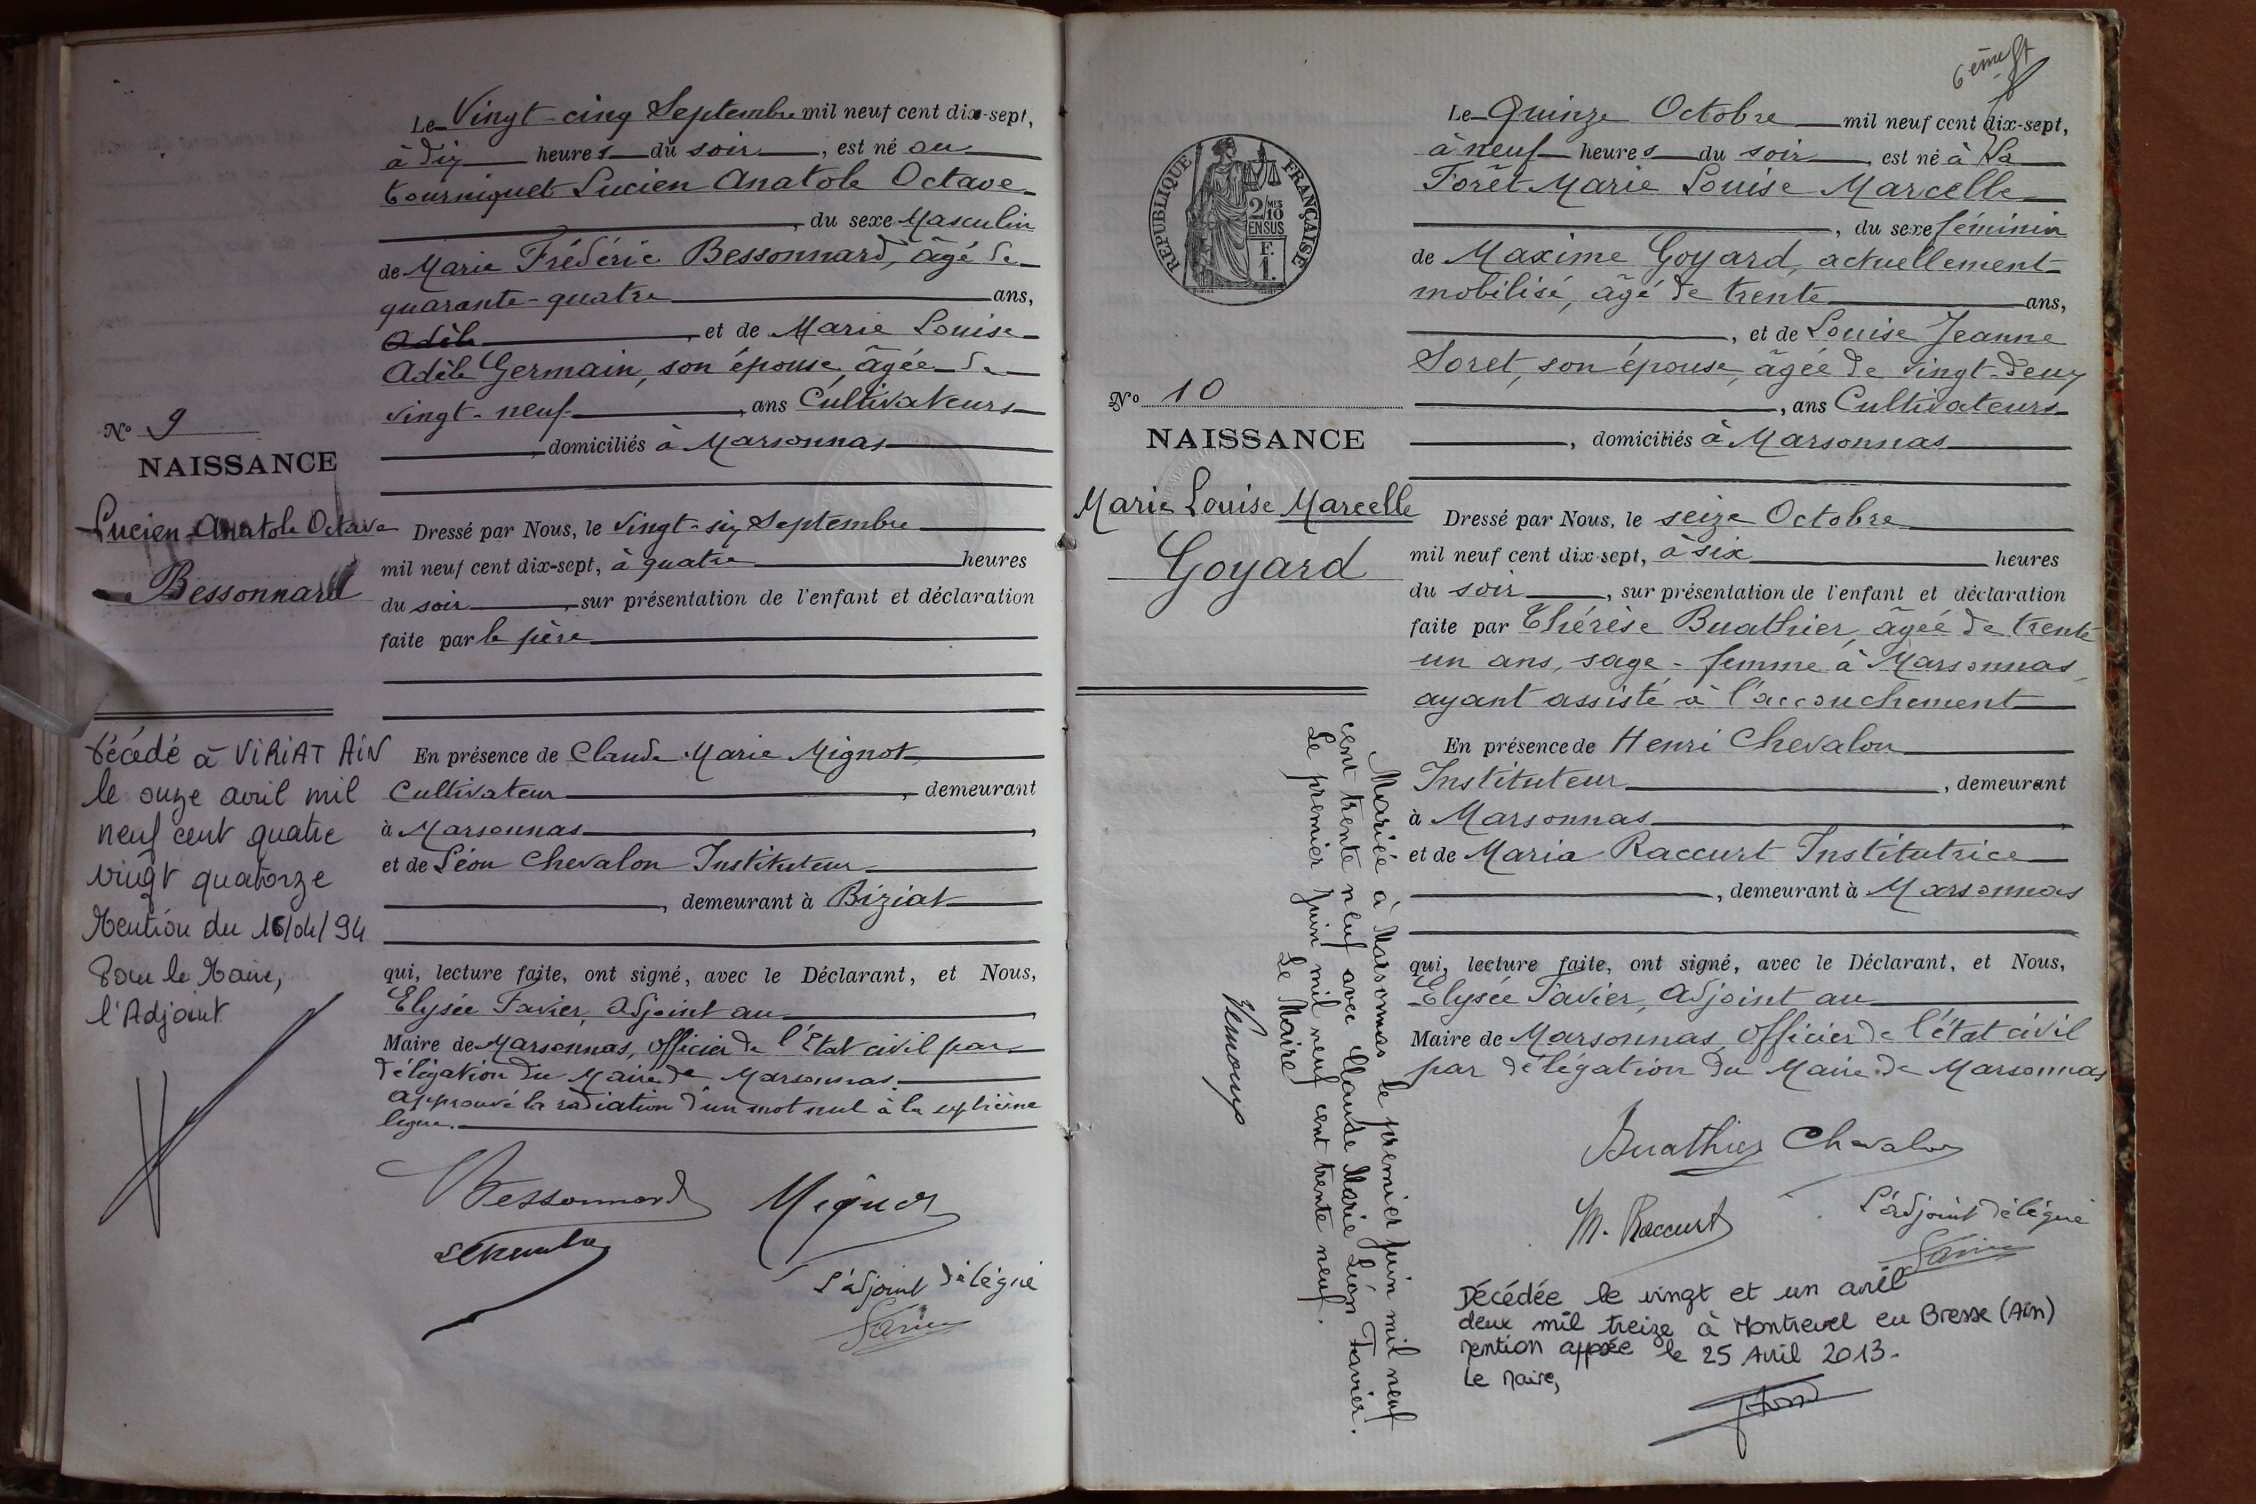 Le Vingt-cinq Septembre mil neuf cent dix-sept,
à dix heures du soir, est né au
tourniquet Lucien Anatole Octave
, du sexe Masculin
de Marie Frédéric Bessonnard, âgé de
quarante-quatre ans,
Adèle, et de Marie Louise
Adèle Germain, son épouse, âgée de
vingt-neuf, ans Cultivateurs
, domiciliés à Marsonnas
N° 9
NAISSANCE
Lucien Anatole Octave
Bessonnard
Dressé par Nous, le vingt-six Septembre
mil neuf cent dix-sept, à quatre heures
du soir, sur présentation de l'enfant et déclaration
faite par le père
En présence de Claude Marie Mignot
Cultivateur, demeurant
à Marsonnas,
et de Léon Chevalon Instituteur
, demeurant à Biziat
qui, lecture faite, ont signé, avec le Déclarant, et Nous,
Elysée Favier, Adjoint au
Maire de Marsonnas, Officier de l'Etat civil par
délégation du Maire de Marsonnas.
Approuvé la radiation d'un mot nul à la septième
ligne.
Bessonnard Mignot
L'adjoint délégué
Favier
Décédé à VIRIAT AIN
le onze avril mil
neuf cent quatre
vingt quatorze
Mention du 16/04/94
Pour le Maire,
l'Adjoint
6ème ft
Le Quinze Octobre mil neuf cent dix-sept,
à neuf heures du soir, est né à La
Forêt Marie Louise Marcelle
, du sexe féminin
de Maxime Goyard, actuellement
mobilisé, âgé de trente ans,
, et de Louise Jeanne
Soret, son épouse, âgée de vingt-deux
, ans Cultivateurs
, domiciliés à Marsonnas
REPUBLIQUE FRANÇAISE
2/10 MES
EN SUS
F.
1.
N° 10
NAISSANCE
Marie Louise Marcelle
Goyard
Dressé par Nous, le seize Octobre
mil neuf cent dix-sept, à six heures
du soir, sur présentation de l'enfant et déclaration
faite par Thérèse Buathier, âgée de trente
un ans, sage-femme à Marsonnas,
ayant assisté à l'accouchement
En présence de Henri Chevalon
Instituteur, demeurant
à Marsonnas
et de Maria Raccurt Institutrice
, demeurant à Marsonnas
qui, lecture faite, ont signé, avec le Déclarant, et Nous,
Elysée Favier, Adjoint au
Maire de Marsonnas, Officier de l'état civil
par délégation du Maire de Marsonnas
Buathier Chevalon
M. Raccurt L'adjoint délégué
Favier
Mariée à Marsonnas le premier juin mil neuf
cent trente neuf avec Claude Marie Léon Favier.
Le premier juin mil neuf cent trente neuf.
Le Maire
Décédée le vingt et un avril
deux mil treize à Montrevel en Bresse (Ain)
mention apposée le 25 Avril 2013.
Le Maire,